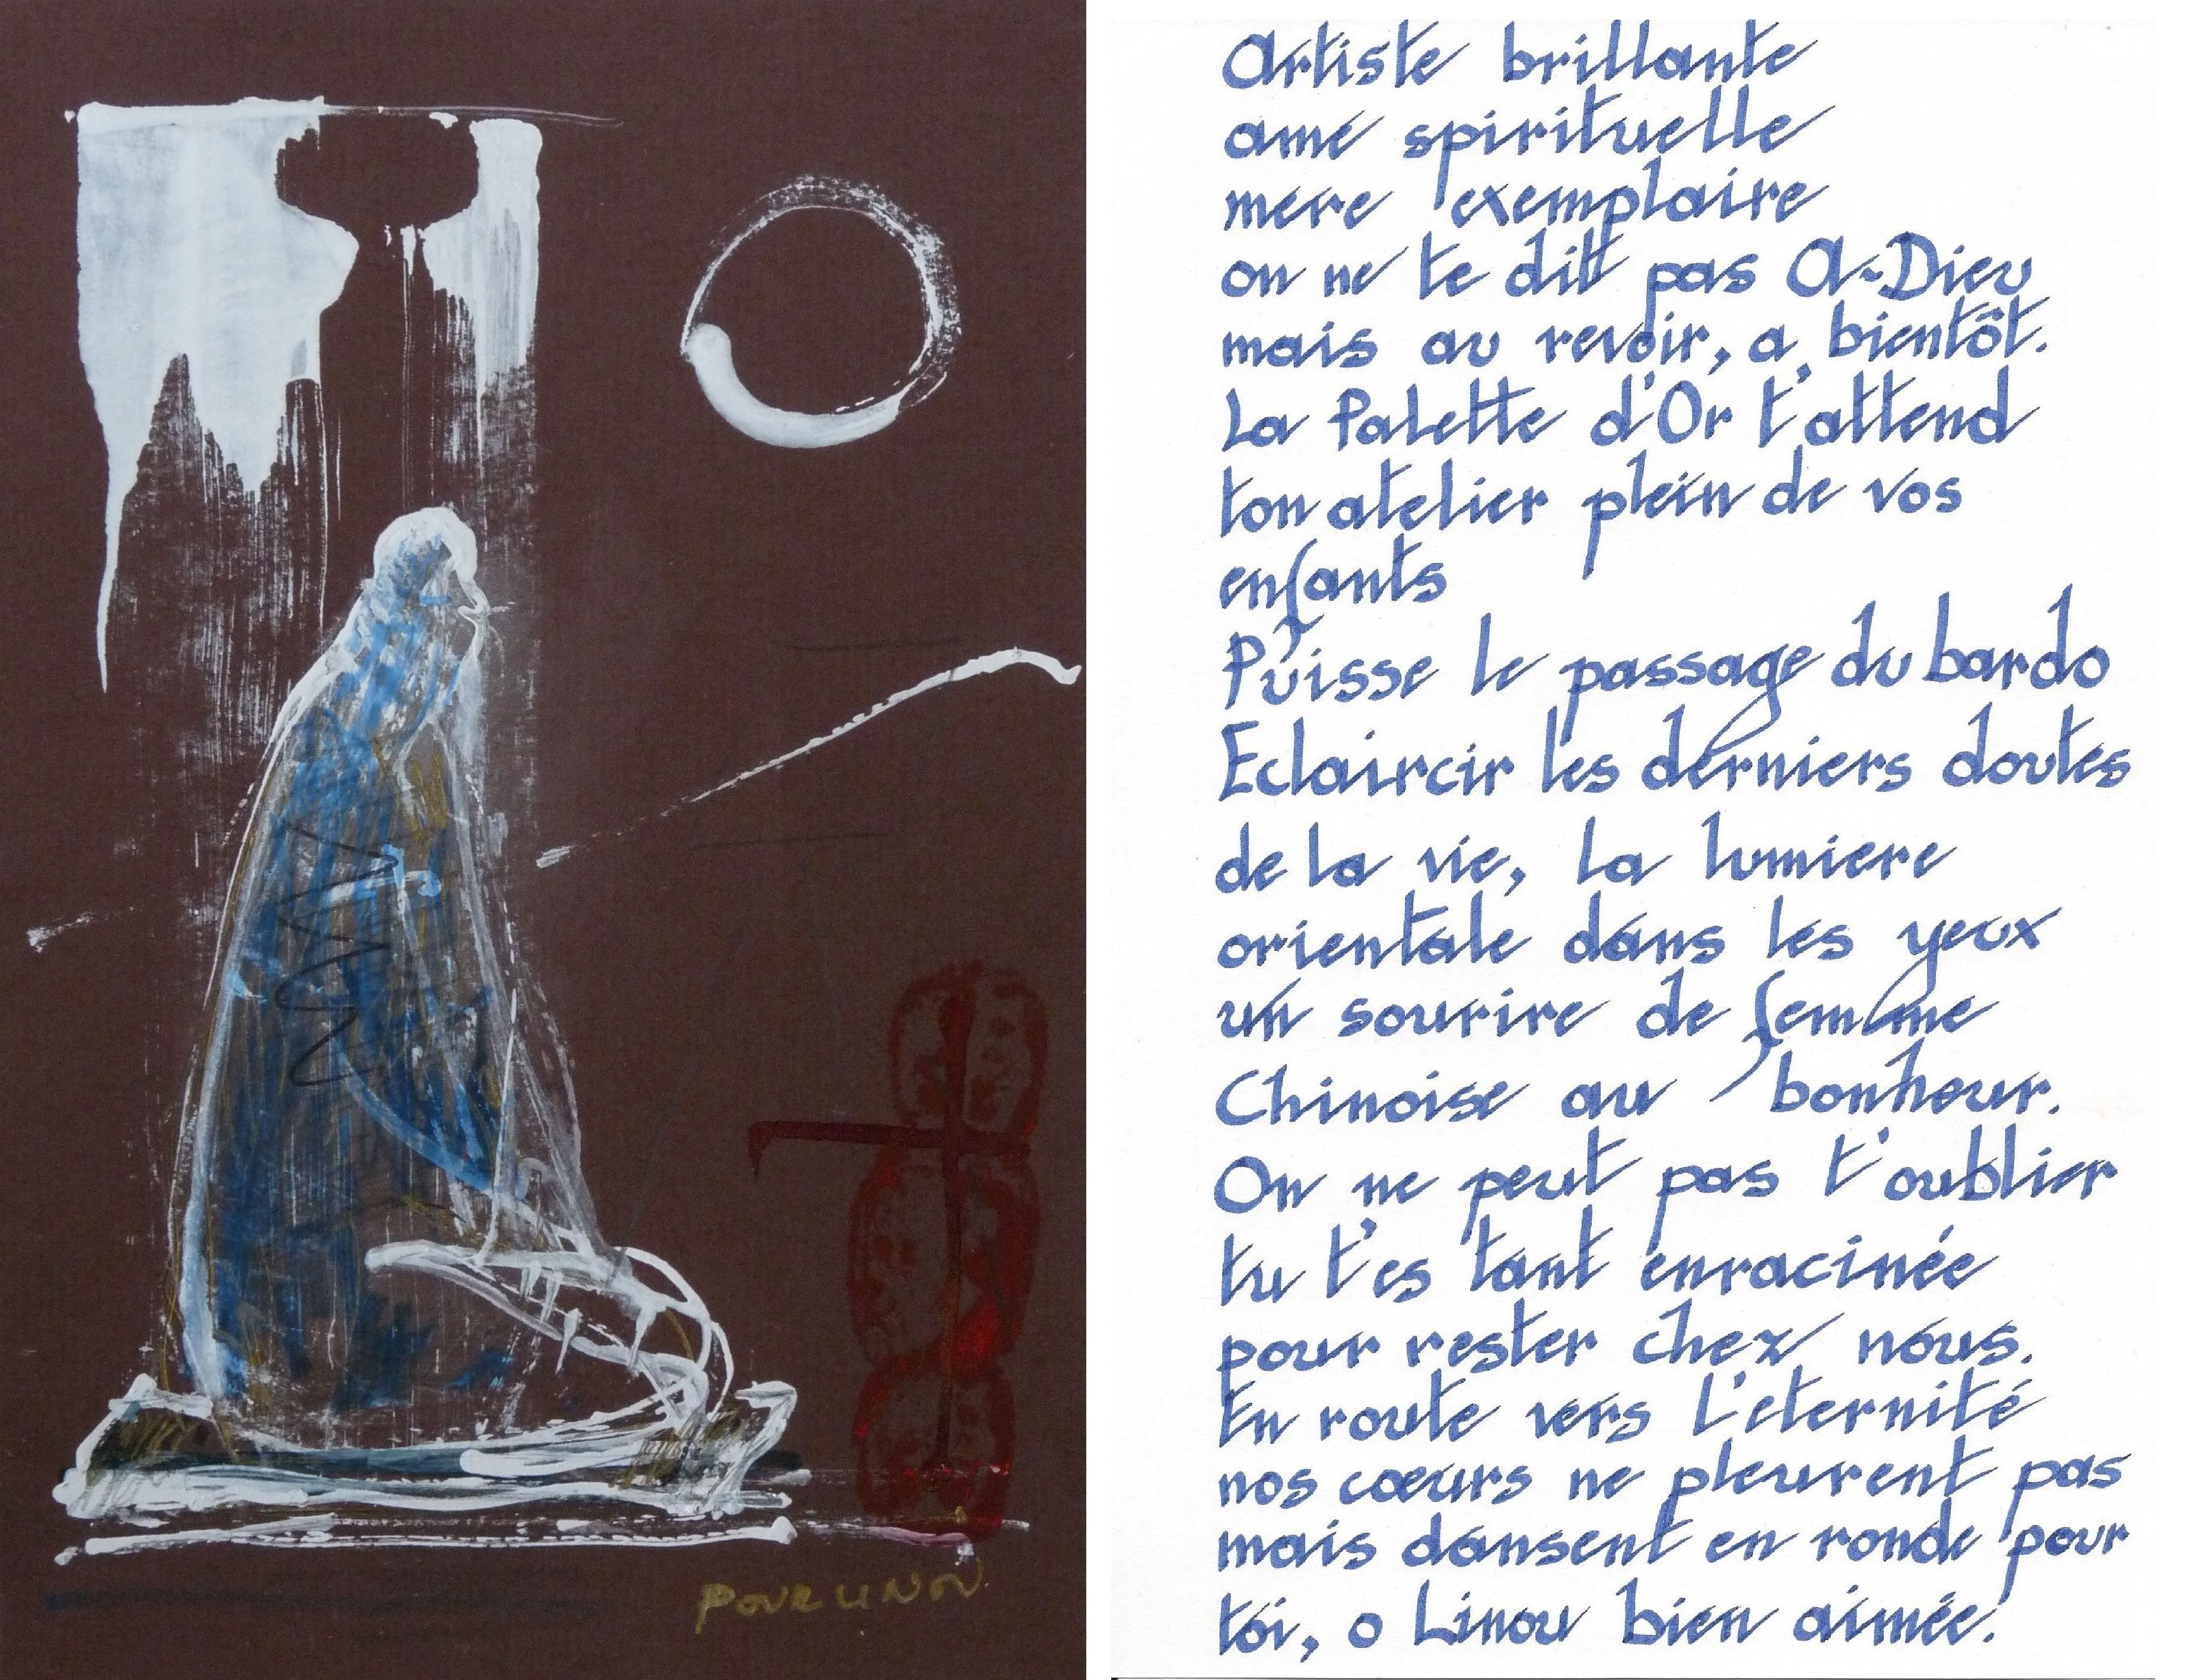 POUR LINOU
Artiste brillante
ame spirituelle
mere exemplaire
on ne te dit pas A-Dieu
mais au revoir, a bientôt.
La Palette d'Or t'attend
ton atelier plein de vos
enfants
Puisse le passage du bardo
Eclaircir les derniers doutes
de la vie, la lumiere
orientale dans les yeux
un sourire de femme
Chinoise au bonheur.
On ne peut pas t'oublier
tu t'es tant enracinée
pour rester chez nous.
En route vers l'eternité
nos cœurs ne pleurent pas
mais dansent en ronde pour
toi, o Linou bien aimée.